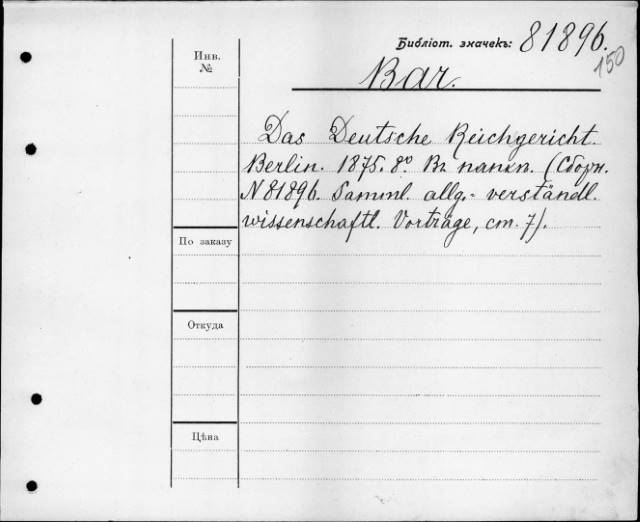 Библіот. значекъ: 81896.
150
Инв.
№
Bar.
Das Deutsche Reichgericht.
Berlin. 1875. 8º. Въ папкѣ. (Сборн.
N 81896. Samml. allg.- verständl.
wissenschaftl. Vorträge, ст. 7).
По заказу
Откуда
Цѣна